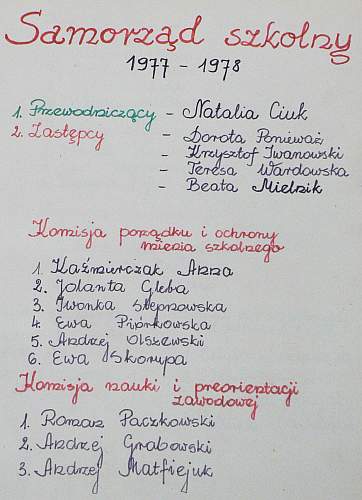 Samorząd szkolny
1977 - 1978
1. Przewodniczący - Natalia Ciuk
2. Zastępcy - Dorota Ponieważ
- Krzysztof Iwanowski
- Teresa Wardowska
- Beata Mielnik
Komisja porządku i ochrony
mienia szkolnego
1. Kaźmierczak Anna
2. Jolanta Gleba
3. Iwonka Stepnowska
4. Ewa Piórkowska
5. Andrzej Olszewski
6. Ewa Skorupa
Komisja nauki i preorientacji
zawodowej
1. Roman Paczkowski
2. Andrzej Grabowski
3. Andrzej Matfiejuk